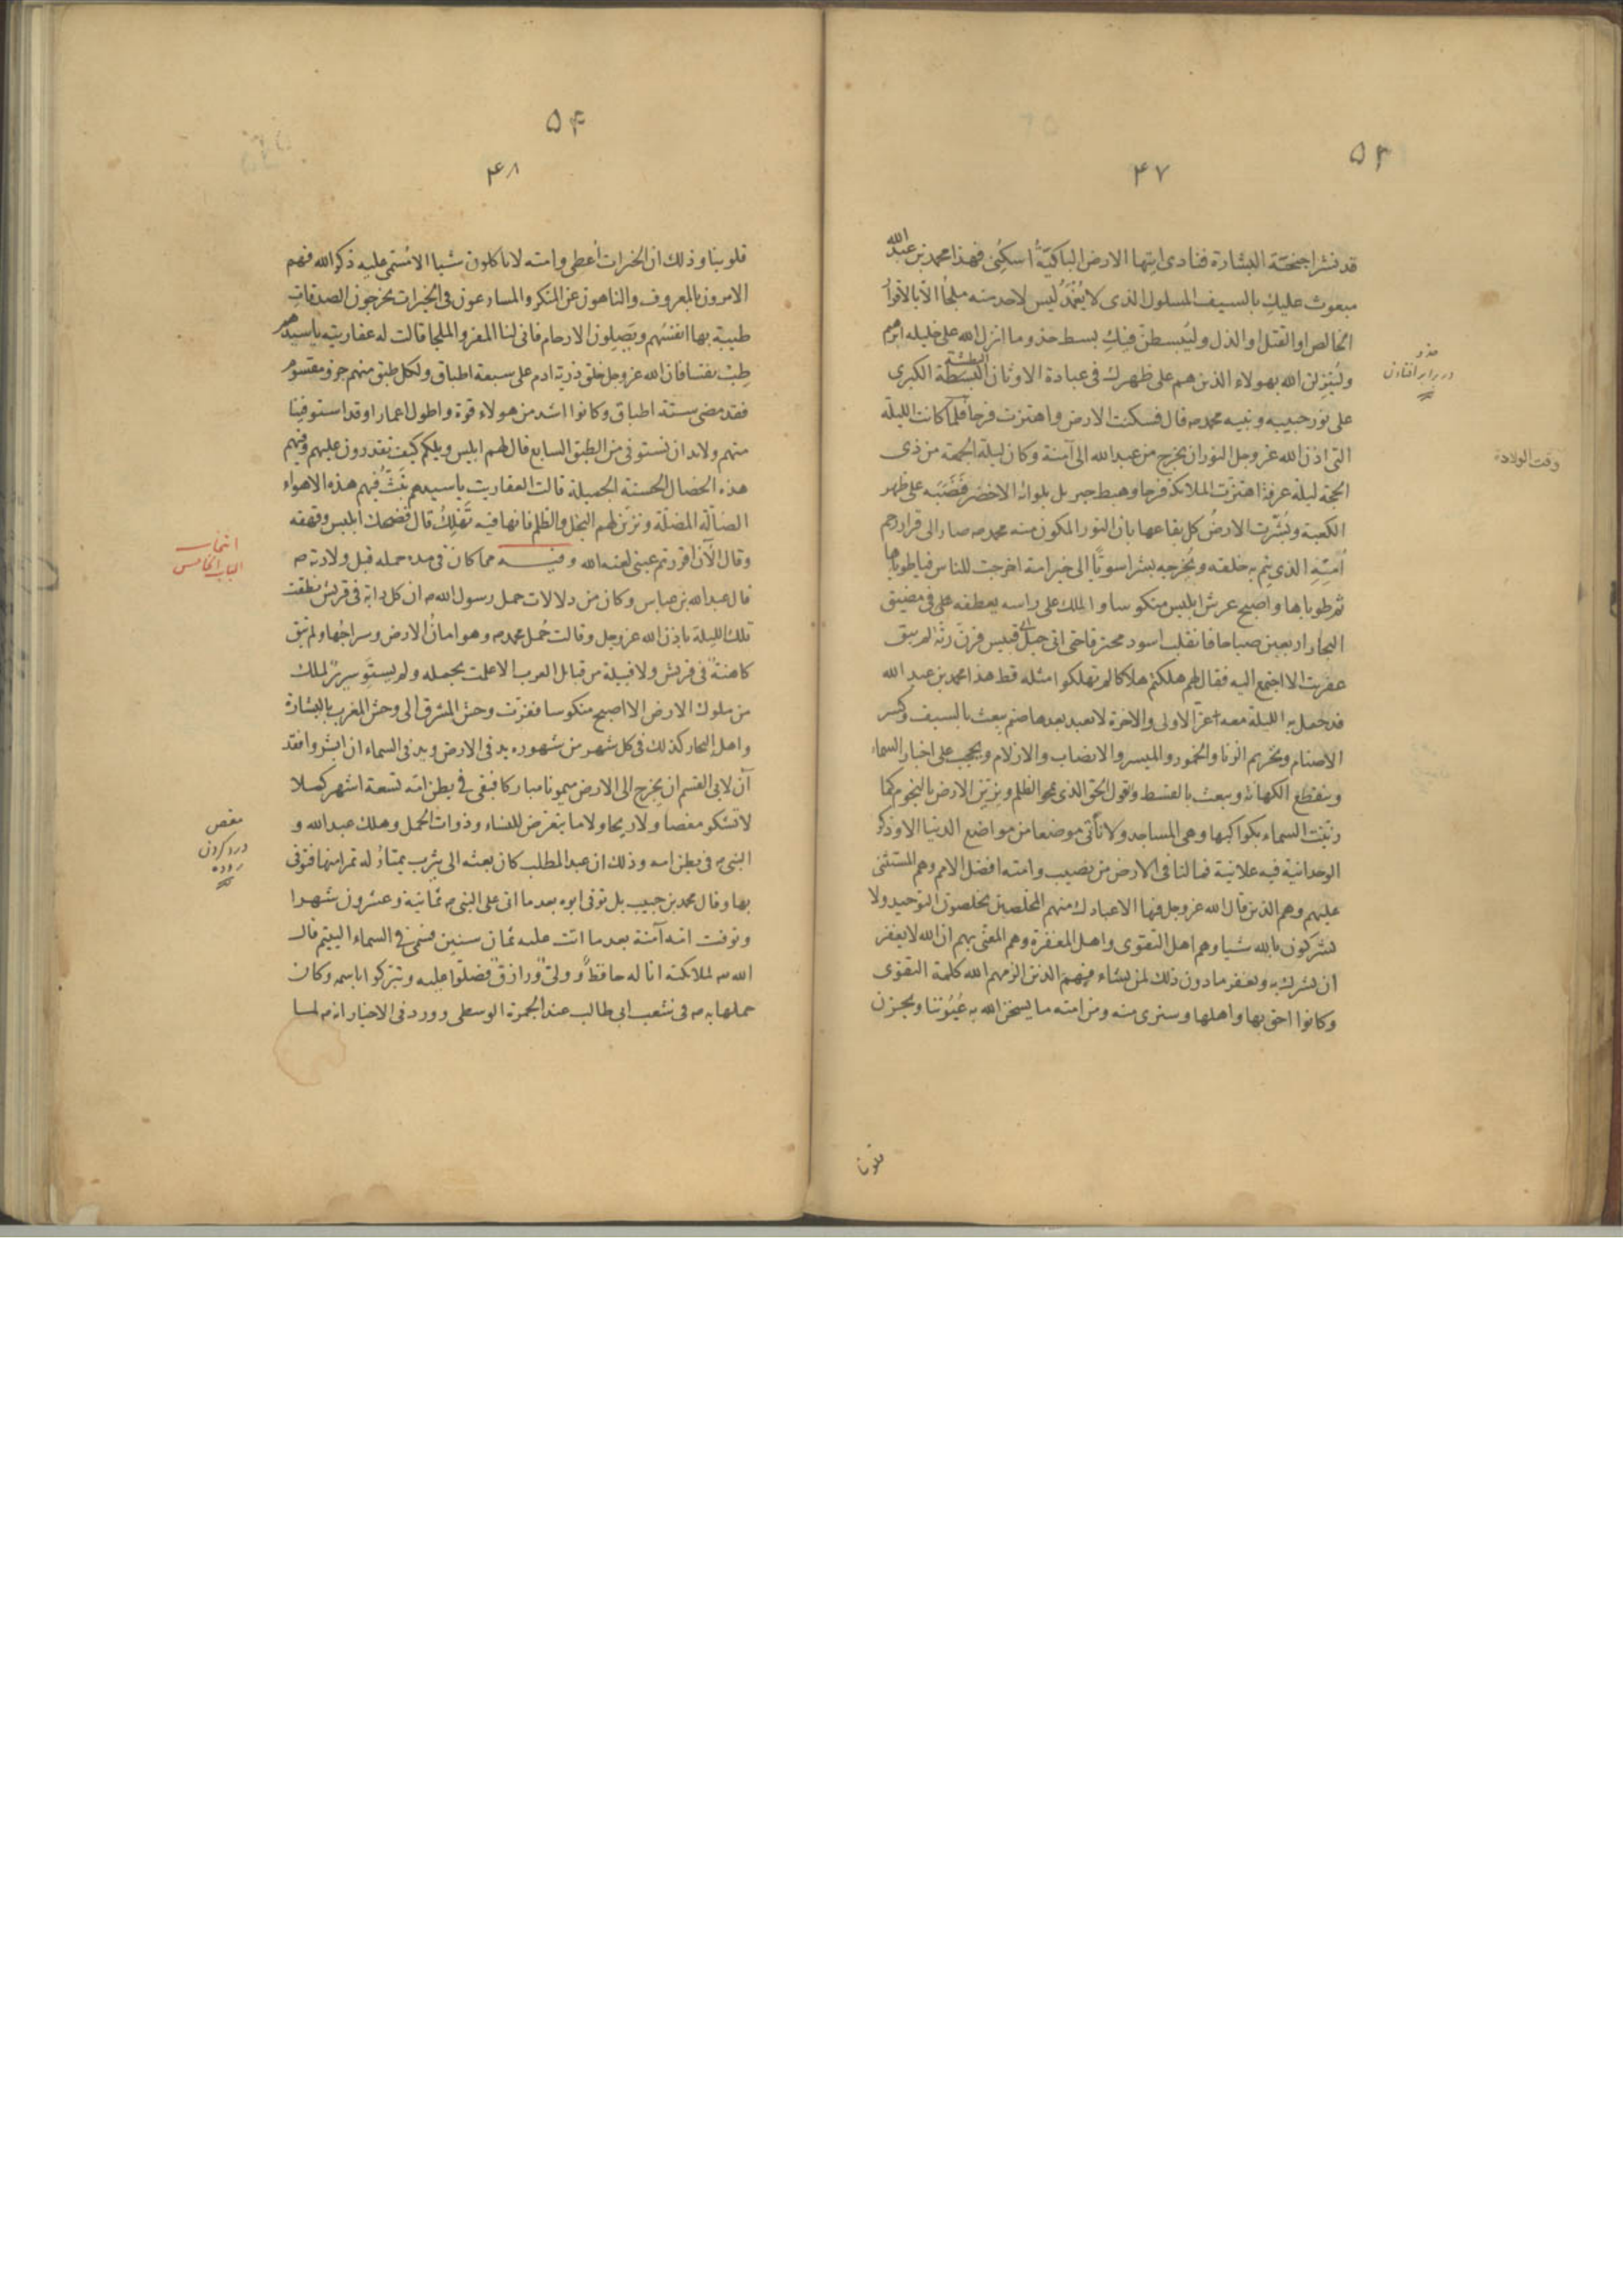 ۵۳
۴۷
قد نشر اجنحة البشارة فنادى ايتها الارض الباكية اسكنى فهذا محمد بن عبد الله
مبعوث عليك بالسيف المسلول الذى لا يغمد ليس لاحد منه ملجأ الا بالاقرار
الخالص او القتل والذل وليبسطن فيك بسط حذو ما انزل الله على خليله ابرهيم
ولينزلن الله بهولاء الذين هم على ظهرك فى عبادة الاوثان البسطة البطشة الكبرى
على نور حبيبه ونبيه محمد ص قال فسكنت الارض واهتزت فرحا فلما كانت الليلة
التى اذن الله عز وجل النور ان يخرج من عبد الله الى آمنة وكان ليلة الجمعة من ذى
الحجة ليلة عرفة اهتزت الملائكة فرحا وهبط جبريل بلوائه الاخضر فنصبه على ظهر
الكعبة وبشرت الارض كل بقاعها بان النور المكون منه محمد ص صار الى قرار رحم
امته الذى يتم به خلقه ويخرجه بشرا سويا الى خير امة اخرجت للناس فيا طوباها
ثم طوباها واصبح عرش ابليس منكوسا والملك على راسه يعطفه على فى مضيق
البحار اربعين صباحا فانقلب اسود محترقا حتى اتى جبل ابى قبيس فرن رنة لم يبق
عفريت الا اجتمع اليه فقال لهم هلكتم هلاكا لم تهلكوا مثله قط هذا محمد بن عبد الله
قد حمل به الليلة معه عز الاولى والاخرة لا نعبد بعدها صنم يبعث بالسيف وكسر
الاصنام وتحريم الزنا والخمور والميسر والانصاب والازلام ويحجب على اخبار السماء
وينقطع الكهانة ويبعث بالقسط وقول الحق الذى يمحو الظلم ويزين الارض بالنجوم كما
زينت السماء بكواكبها وهى المساجد ولا نأتى موضعا من مواضع الدنيا الا وذكر
الوحدانية فيه علانية فما لنا فى الارض من نصيب وامته افضل الامم وهم المستثنى
عليهم وهم الذين قال الله عز وجل فيها الا عبادك منهم المخلصين يخلصون التوحيد ولا
يشركون بالله شيا وهم اهل التقوى واهل المغفرة وهم المعنى بهم ان الله لا يغفر
ان يشرك به ويغفر ما دون ذلك لمن يشاء فهم الذين الزمهم الله كلمة التقوى
وكانوا احق بها واهلها وسنرى منه ومن امته ما يسخن الله به عيوننا ويحزن
قلوبنا
حذو
در برابر افتادن
وقت الولادة
۵۴
۴۸
قلوبنا وذلك ان الخيرات أعطى وامته لا ياكلون شيا الا سمى عليه ذكر الله فهم
الامرون بالمعروف والناهون عن المنكر والمسارعون فى الخيرات يخرجون الصدقات
طيبة بها انفسهم ويصلون الارحام فانى لنا المفر والملجا قالت له عفاريته يا سيدهم
طب نفسا فان الله عز وجل خلق ذرية ادم على سبعة اطباق ولكل طبق منهم جزؤ مقسوم
فقد مضى ستة اطباق وكانوا اشد من هولاء قوة واطول اعمارا وقد استوفينا
منهم ولابد ان نستوفى من الطبق السابع فقال لهم ابليس ويلكم كيف تقدرون عليهم وفيهم
هذه الخصال الحسنة الجميلة قالت العفاريت يا سيدهم نبث فيهم هذه الاهواء
الضالة المضلة ونزين لهم البخل والظلم فانها فيه تهلك قال فضحك ابليس وقهقه
وقال الآن اقررتم عينى لعنه الله وفيه مما كان فى مدة حمله قبل ولادته ص
قال عبد الله بن عباس وكان من دلالات حمل رسول الله ص ان كل دابة فى قريش نطقت
تلك الليلة باذن الله عز وجل وقالت حمل محمد ص وهو امان الارض وسراجها ولم تبق
كاهنة فى قريش ولا قبيلة من قبائل العرب الا علمت بحمله ولم يستو سرير لملك
من ملوك الارض الا اصبح منكوسا ففزت وحش المشرق الى وحش المغرب بالبشارة
واهل البحار كذلك فى كل شهر من شهوره يد فى الارض ويد فى السماء ان ابشروا فقد
آن لابى القسم ان يخرج الى الارض ميمونا مباركا فبقى فى بطن امه تسعة اشهر كملا
لا تشكو مغصا ولا ريحا ولا ما يتعرض للنساء وذوات الحمل وهلك عبد الله و
النبى ص فى بطن امه وذلك ان عبد المطلب كان بعثه الى يثرب يمتار له تمرا منها فتوفى
بها وقال محمد بن حبيب بل توفى ابوه بعد ما اتى على النبى ص ثمانية وعشرون شهرا
وتوفت امه آمنة بعد ما اتت عليه ثمان سنين فسمى فى السماء اليتيم قال
الله ص لملائكته انا له حافظ وولى ورازق فصلوا عليه وتبركوا باسمه وكان
حملها به ص فى شعب ابى طالب عند الجمرة الوسطى وورد فى الاخبار انه ص لما
الباب الخامس
مغص
درد کردن
روده